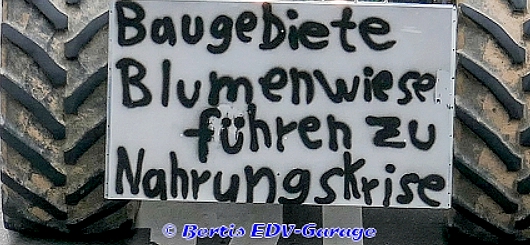 Baugebiete
Blumenwiese
führen zu
Nahrungskrise
© Bertis EDV-Garage